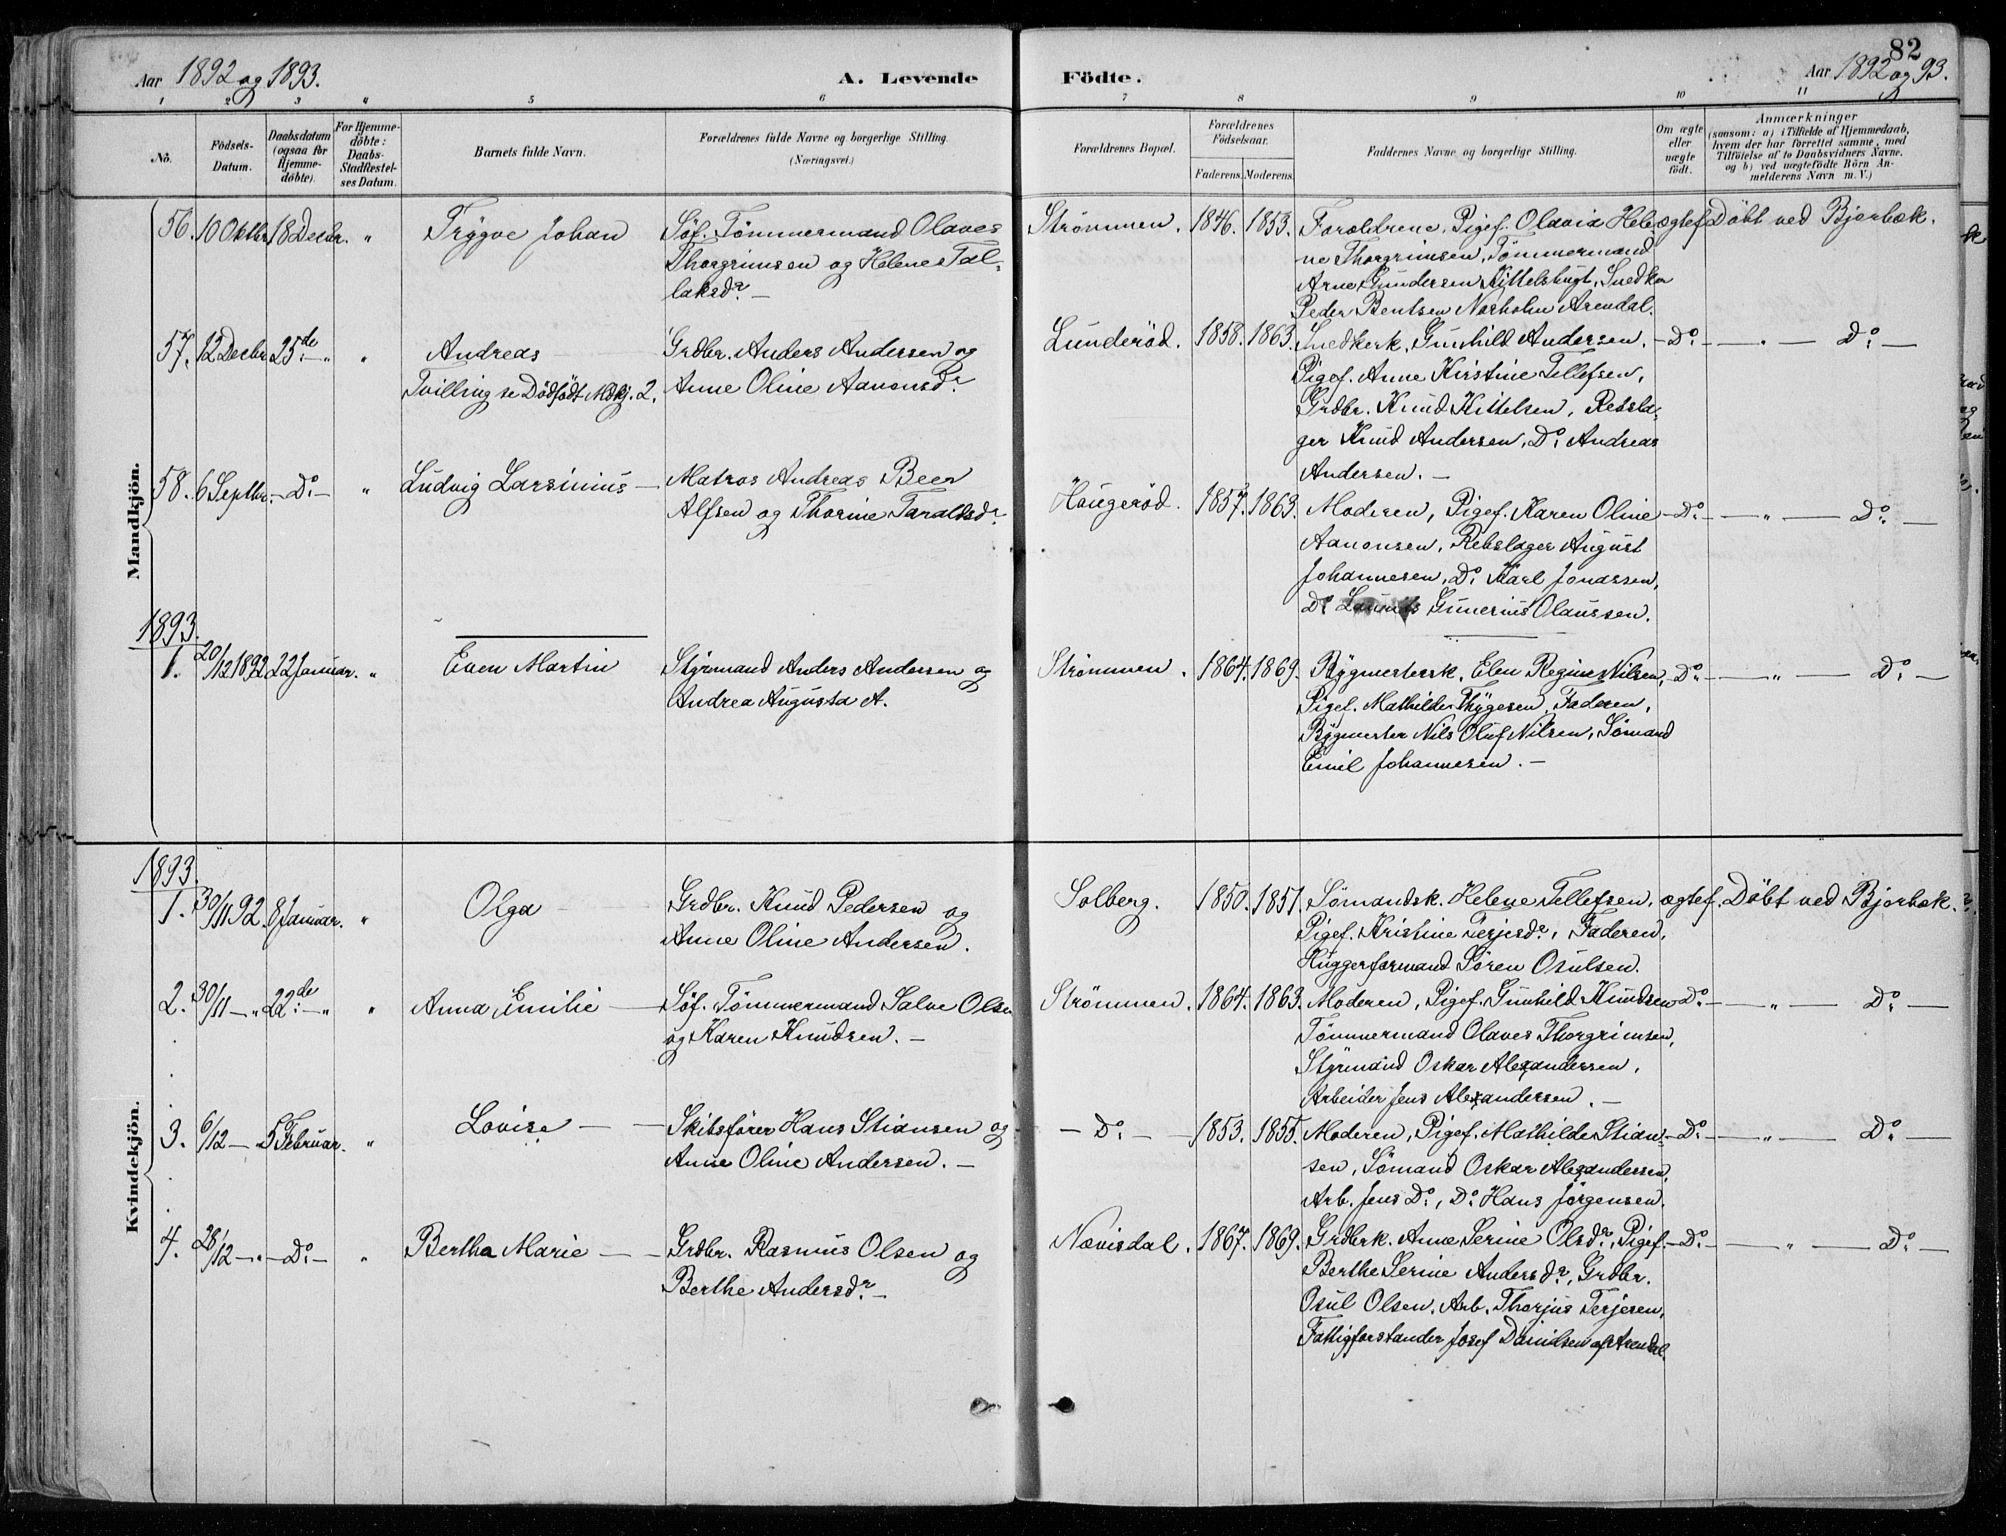 82
Aar 1892 og 1893.
A. Levende
Födte.
Aar 1892 og 93.
1 2 3 " 5 6 7 8 9 10 11
No.
Födsels-
Datum.
Daabsdatum
(ogsaa for
Hjemme-
döbte).
For Hjemme-
döbte:
Daabs-
Stadfæstel-
ses Datum.
Barnets fulde Navn.
Forældrenes fulde Navne og borgerlige Stilling.
(Næringsvei.)
Forældrenes Bopæl.
Forældrenes
Födselsaar.
Faderens. Moderens.
Faddernes Navne og borgerlige Stilling.
Om ægte
eller
uægte
födt.
Anmærkninger
(saasom: a) i Tilfælde af Hjemmedaab,
hvem der har forrettet samme, med
Tilföielse af to Daabsvidners Navne.
og b) ved uægtefödte Börn An-
melderens Navn m. V.)
Mandkjön.
56. 10 Oktbr. 18 Decbr. " Trygve Johan
Söf. Tömmermand Olaves
Thorgrimsen og Helene Tal-
laksdr. —
Strömmen. 1846. 1853.
Forældrene, Pigef. Olavia Hele-
ne Thorgrimsen, Tömmermand
Arne Gundersen Kittelsbugt, Snedker
Peder Bentsen Norholm Arendal.
ægtef. Döbt ved Bjorbæk.
57. 12 Decbr. 25de — " " Andreas
Tvilling se Dödfödt Mdkj. 2.
Grdbr. Anders Andersen og
Anne Oline Aanonsdr.
Lunderöd. 1858. 1863.
Snedkerk. Gunhild Andersen,
Pigef. Anne Kirstine Tellefsen,
Grdbr. Knud Kittelsen, Rebsla-
ger Knud Andersen, Do. Andreas
Andersen. —
— Do. — — " — Do. —
58. 6 Septbr. — Do. — " Ludvig Larsinius —
Matros Andreas Beer
Alfsen og Thorine Taraldsdr.
Haugeröd. 1857. 1863.
Moderen, Pigef. Karen Oline
Aanonsen, Rebslager August
Johannesen, Do. Karl Jonassen,
Do. Gunerius Olaussen.
— Do. — — " — Do. —
1893.
1. 20/12 1892 22 Januar. " Even Martin
Styrmand Anders Andersen og
Andrea Augusta A.
Strömmen. 1864. 1869.
Bygmesterk. Elen Regine Nilsen,
Pigef. Mathilde Thygesen, Faderen,
Bygmester Nils Oluf Nilsen, Sömand
Emil Johannesen. —
— Do. — — " — Do. —
Kvindekjön.
1893.
1. 30/11 92. 8 Januar. " Olga
Grdbr. Knud Pedersen og
Anne Oline Andersen.
Solberg. 1850. 1851.
Sömandsk. Helene Tellefsen,
Pigef. Kristine Terjesdr., Faderen,
Huggerformand Sören Osulsen.
ægtef. Döbt ved Bjorbæk.
2. 30/11 — " 22de — " " Anna Emilie —
Söf. Tömmermand Salve Olsen
og Karen Knudsen. —
Strömmen. 1864. 1863.
Moderen, Pigef. Gunhild Knudsen
Tömmermand Olaves Thorgrimsen,
Styrmand Oskar Alexandersen,
Arbeider Jens Alexandersen. —
Do. — — " — Do. —
3. 6/12 — 5 Februar. " Lovise —
Skibsförer Hans Stiansen og
Anne Oline Andersen. —
— Do. — 1853. 1855.
Moderen, Pigef. Mathilde Stian-
sen, Sömand Oskar Alexandersen,
Arb. Jens Do., Do. Hans Jörgensen.
— Do. — — " — Do. —
4. 28/12 — " — Do. — " Bertha Marie —
Grdbr. Rasmus Olsen og
Berthe Andersdr. —
Nævisdal. 1867. 1869.
Grdbrk. Anne Serine Olsdr., Pigef.
Berthe Serine Andersdr., Grdbr.
Osul Olsen, Arb. Thorjus Terjesen,
Fattigforstander Josef Davidsen af Arendal.
— Do. — — " — Do. —